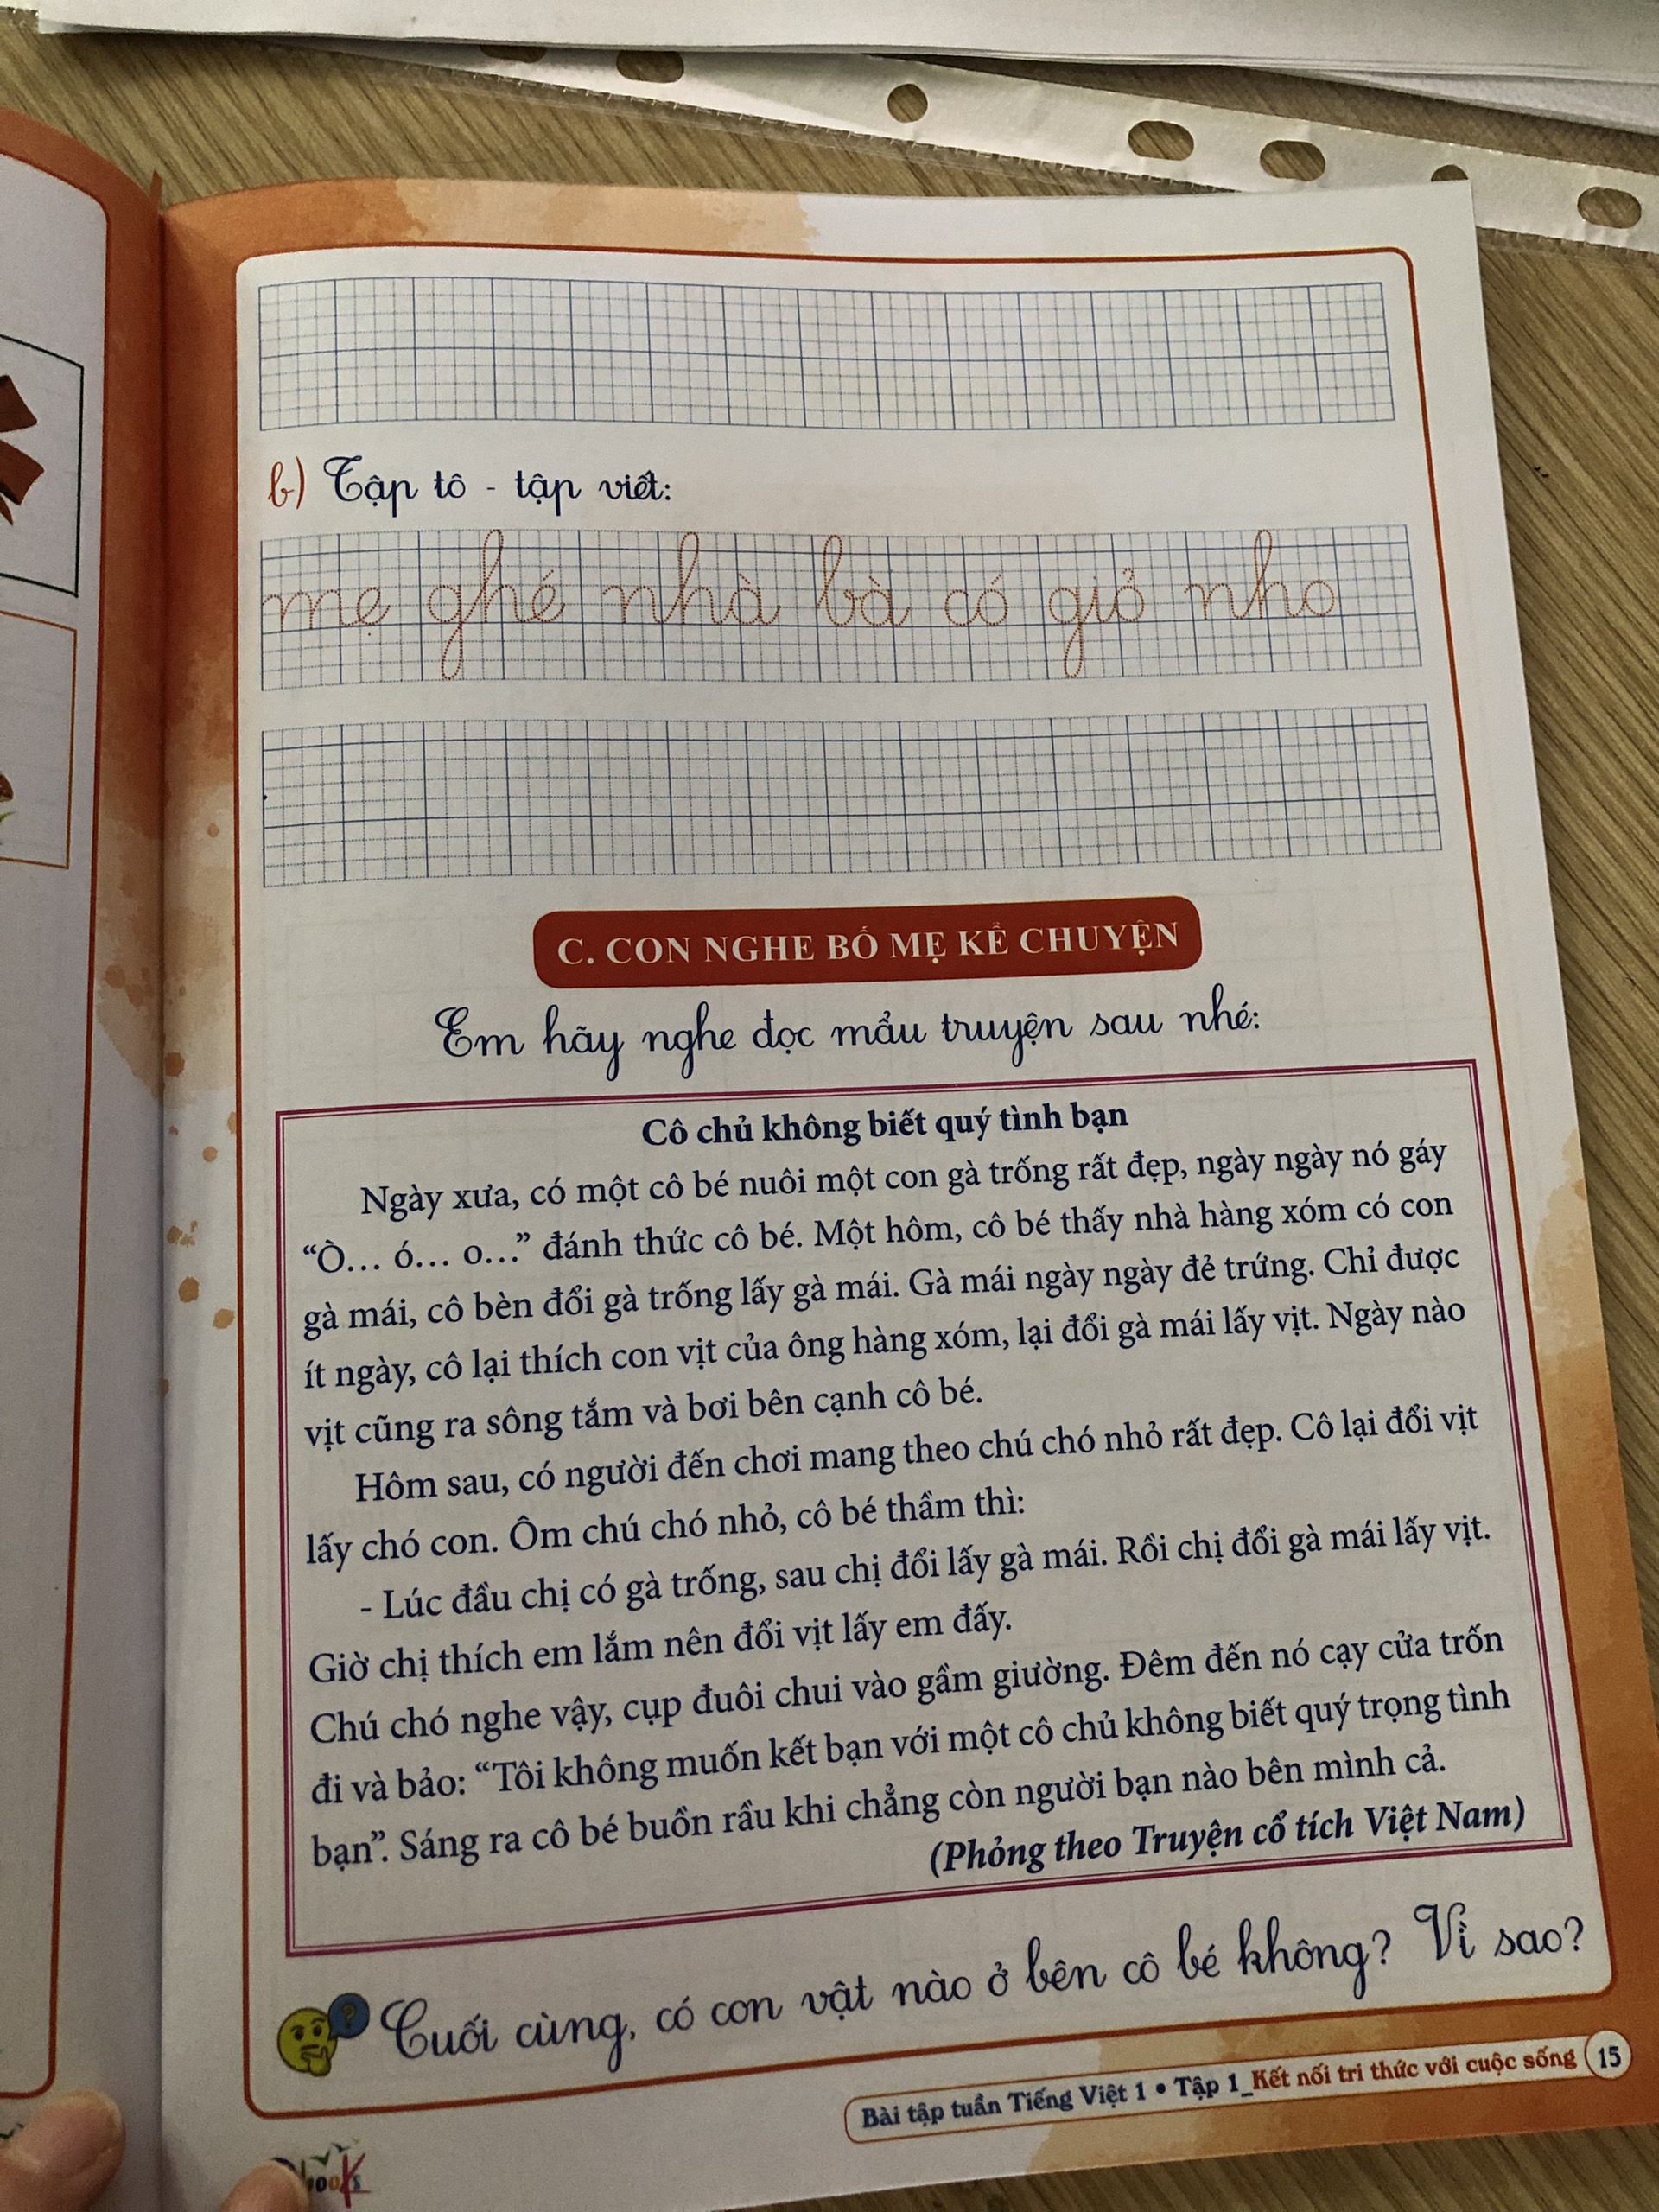 b) Tập tô - tập viết:
mẹ ghé nhà bà có giỏ nho
C. CON NGHE BỐ MẸ KỂ CHUYỆN
Em hãy nghe đọc mẩu truyện sau nhé:
Cô chủ không biết quý tình bạn
Ngày xưa, có một cô bé nuôi một con gà trống rất đẹp, ngày ngày nó gáy
“Ò... ó... o...” đánh thức cô bé. Một hôm, cô bé thấy nhà hàng xóm có con
gà mái, cô bèn đổi gà trống lấy gà mái. Gà mái ngày ngày đẻ trứng. Chỉ được
ít ngày, cô lại thích con vịt của ông hàng xóm, lại đổi gà mái lấy vịt. Ngày nào
vịt cũng ra sông tắm và bơi bên cạnh cô bé.
Hôm sau, có người đến chơi mang theo chú chó nhỏ rất đẹp. Cô lại đổi vịt
lấy chó con. Ôm chú chó nhỏ, cô bé thầm thì:
- Lúc đầu chị có gà trống, sau chị đổi lấy gà mái. Rồi chị đổi gà mái lấy vịt.
Giờ chị thích em lắm nên đổi vịt lấy em đấy.
Chú chó nghe vậy, cụp đuôi chui vào gầm giường. Đêm đến nó cạy cửa trốn
đi và bảo: “Tôi không muốn kết bạn với một cô chủ không biết quý trọng tình
bạn”. Sáng ra cô bé buồn rầu khi chẳng còn người bạn nào bên mình cả.
(Phỏng theo Truyện cổ tích Việt Nam)
Cuối cùng, có con vật nào ở bên cô bé không? Vì sao?
Bài tập tuần Tiếng Việt 1 • Tập 1_Kết nối tri thức với cuộc sống 15